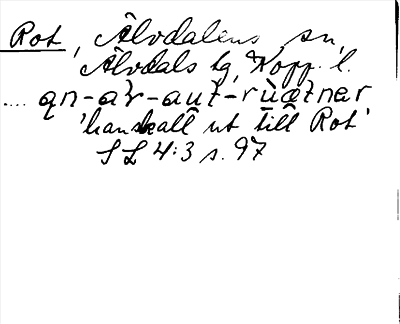 Rot, Älvdalens sn,
Älvdals tg, Kopp. l.
.... qn-ar-aut-rùætner
'han skall ut till Rot'
SL 4:3 s. 97